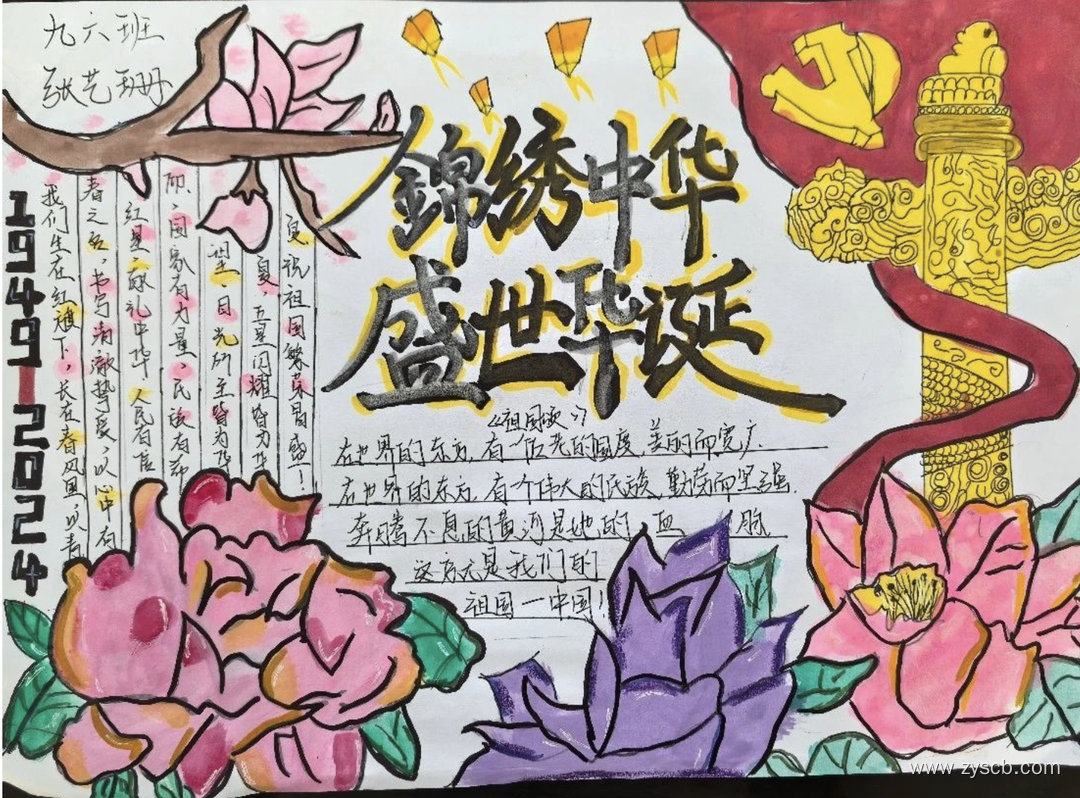 九六班
张艺珊
錦绣中华
盛世华诞
1949—2024
我们生在红旗下,长在春风里,以青
者之名,书写清澈挚爱,以心中
红星,献礼中华 人民有信
仰,国家有力量,民族有希
望 目光所至皆为华
夏,五星闪耀皆为
复祝祖国繁荣昌盛!
《祖国颂》
在世界的东方,有一个古老的国度,美丽而宽广
在世界的东方,有个伟大的民族,勤劳而坚强
奔腾不息的黄河是她的血脉
这就是我们的
祖国一中国!
www.zyscb.com